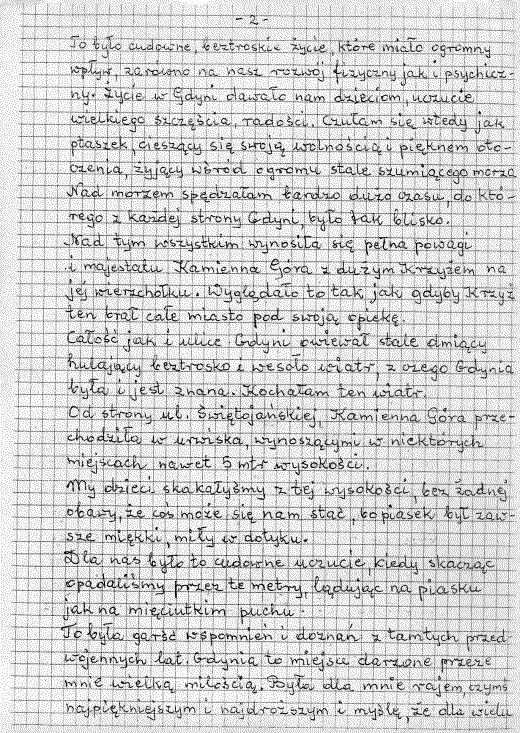 - 2 -
To było cudowne, beztroskie życie, które miało ogromny
wpływ, zarówno na nasz rozwój fizyczny jak i psychicz-
ny. Życie w Gdyni dawało nam dzieciom, uczucie
wielkiego szczęścia, radości. Czułam się wtedy jak
ptaszek, cieszący się swoją wolnością i pięknem oto-
czenia, żyjący wśród ogromu stale szumiącego morza
Nad morzem spędzałam bardzo dużo czasu, do któ-
rego z każdej strony Gdyni, było tak blisko.
Nad tym wszystkim wynosiła się pełna powagi
i majestatu Kamienna Góra z dużym Krzyżem na
jej wierzchołku. Wyglądało to tak, jak gdyby Krzyż
ten brał całe miasto pod swoją opiekę.
Całość jak i ulice Gdyni owiewał stale dmiący
hulający beztrosko i wesoło wiatr, z czego Gdynia
była i jest znana. Kochałam ten wiatr.
Od strony ul. Świętojańskiej, Kamienna Góra prze-
chodziła w urwiska, wynoszącymi w niektórych
miejscach nawet 5 mtr wysokości.
My dzieci skakałyśmy z tej wysokości, bez żadnej
obawy, że coś może się nam stać, bo piasek był zaw-
sze miękki, miły w dotyku.
Dla nas było to cudowne uczucie, kiedy skacząc
opadaliśmy przez te metry, lądując na piasku
jak na mięciutkim puchu.
To była garść wspomnień i doznań z tamtych przed-
wojennych lat. Gdynia to miejsce darzone przeze
mnie wielką miłością. Była dla mnie rajem, czymś
najpiękniejszym i najdroższym i myślę, że dla wielu